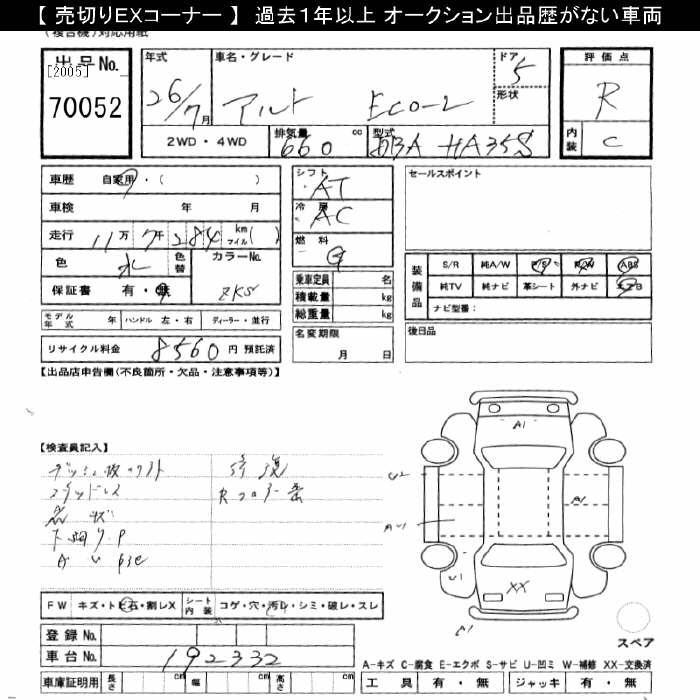 【 売切りEXコーナー 】 過去１年以上 オークション出品歴がない車両
(複合機)対応用紙
出品No.
[2005]
70052
年式
26/7月
車名・グレード
アルト ECO-L
ドア
5
形状
評価点
R
内装
C
2WD・4WD
排気量
660 cc
型式
DBA HA35S
車歴 自家用・( )
車検 年 月
走行 11万7千284 km マイル( )
色 水 色替
カラーNo.
ZKS
保証書 有・無
モデル年式 年 ハンドル 左・右 ディーラー・並行
リサイクル料金 8560 円 預託済
シフト
AT
冷房
AC
燃料
G
乗車定員 名
積載量 kg
総重量 kg
名変期限
月 日
セールスポイント
装備品
S/R 純A/W P/S P/W ABS
純TV 純ナビ 革シート 外ナビ エアB
ナビ型番：
後日品
【出品店申告欄(不良箇所・欠品・注意事項等)】
【検査員記入】
修復
下廻りP
A1
A1
U1
XX
A1
FW キズ・トビ石・割レX シート内装 コゲ・穴・汚レ・シミ・破レ・スレ
登録No.
車台No. 192332
車庫証明用 長さ cm 幅 cm 高さ cm
スペア
A-キズ C-腐食 E-エクボ S-サビ U-凹ミ W-補修 XX-交換済
工具 有・無 ジャッキ 有・無